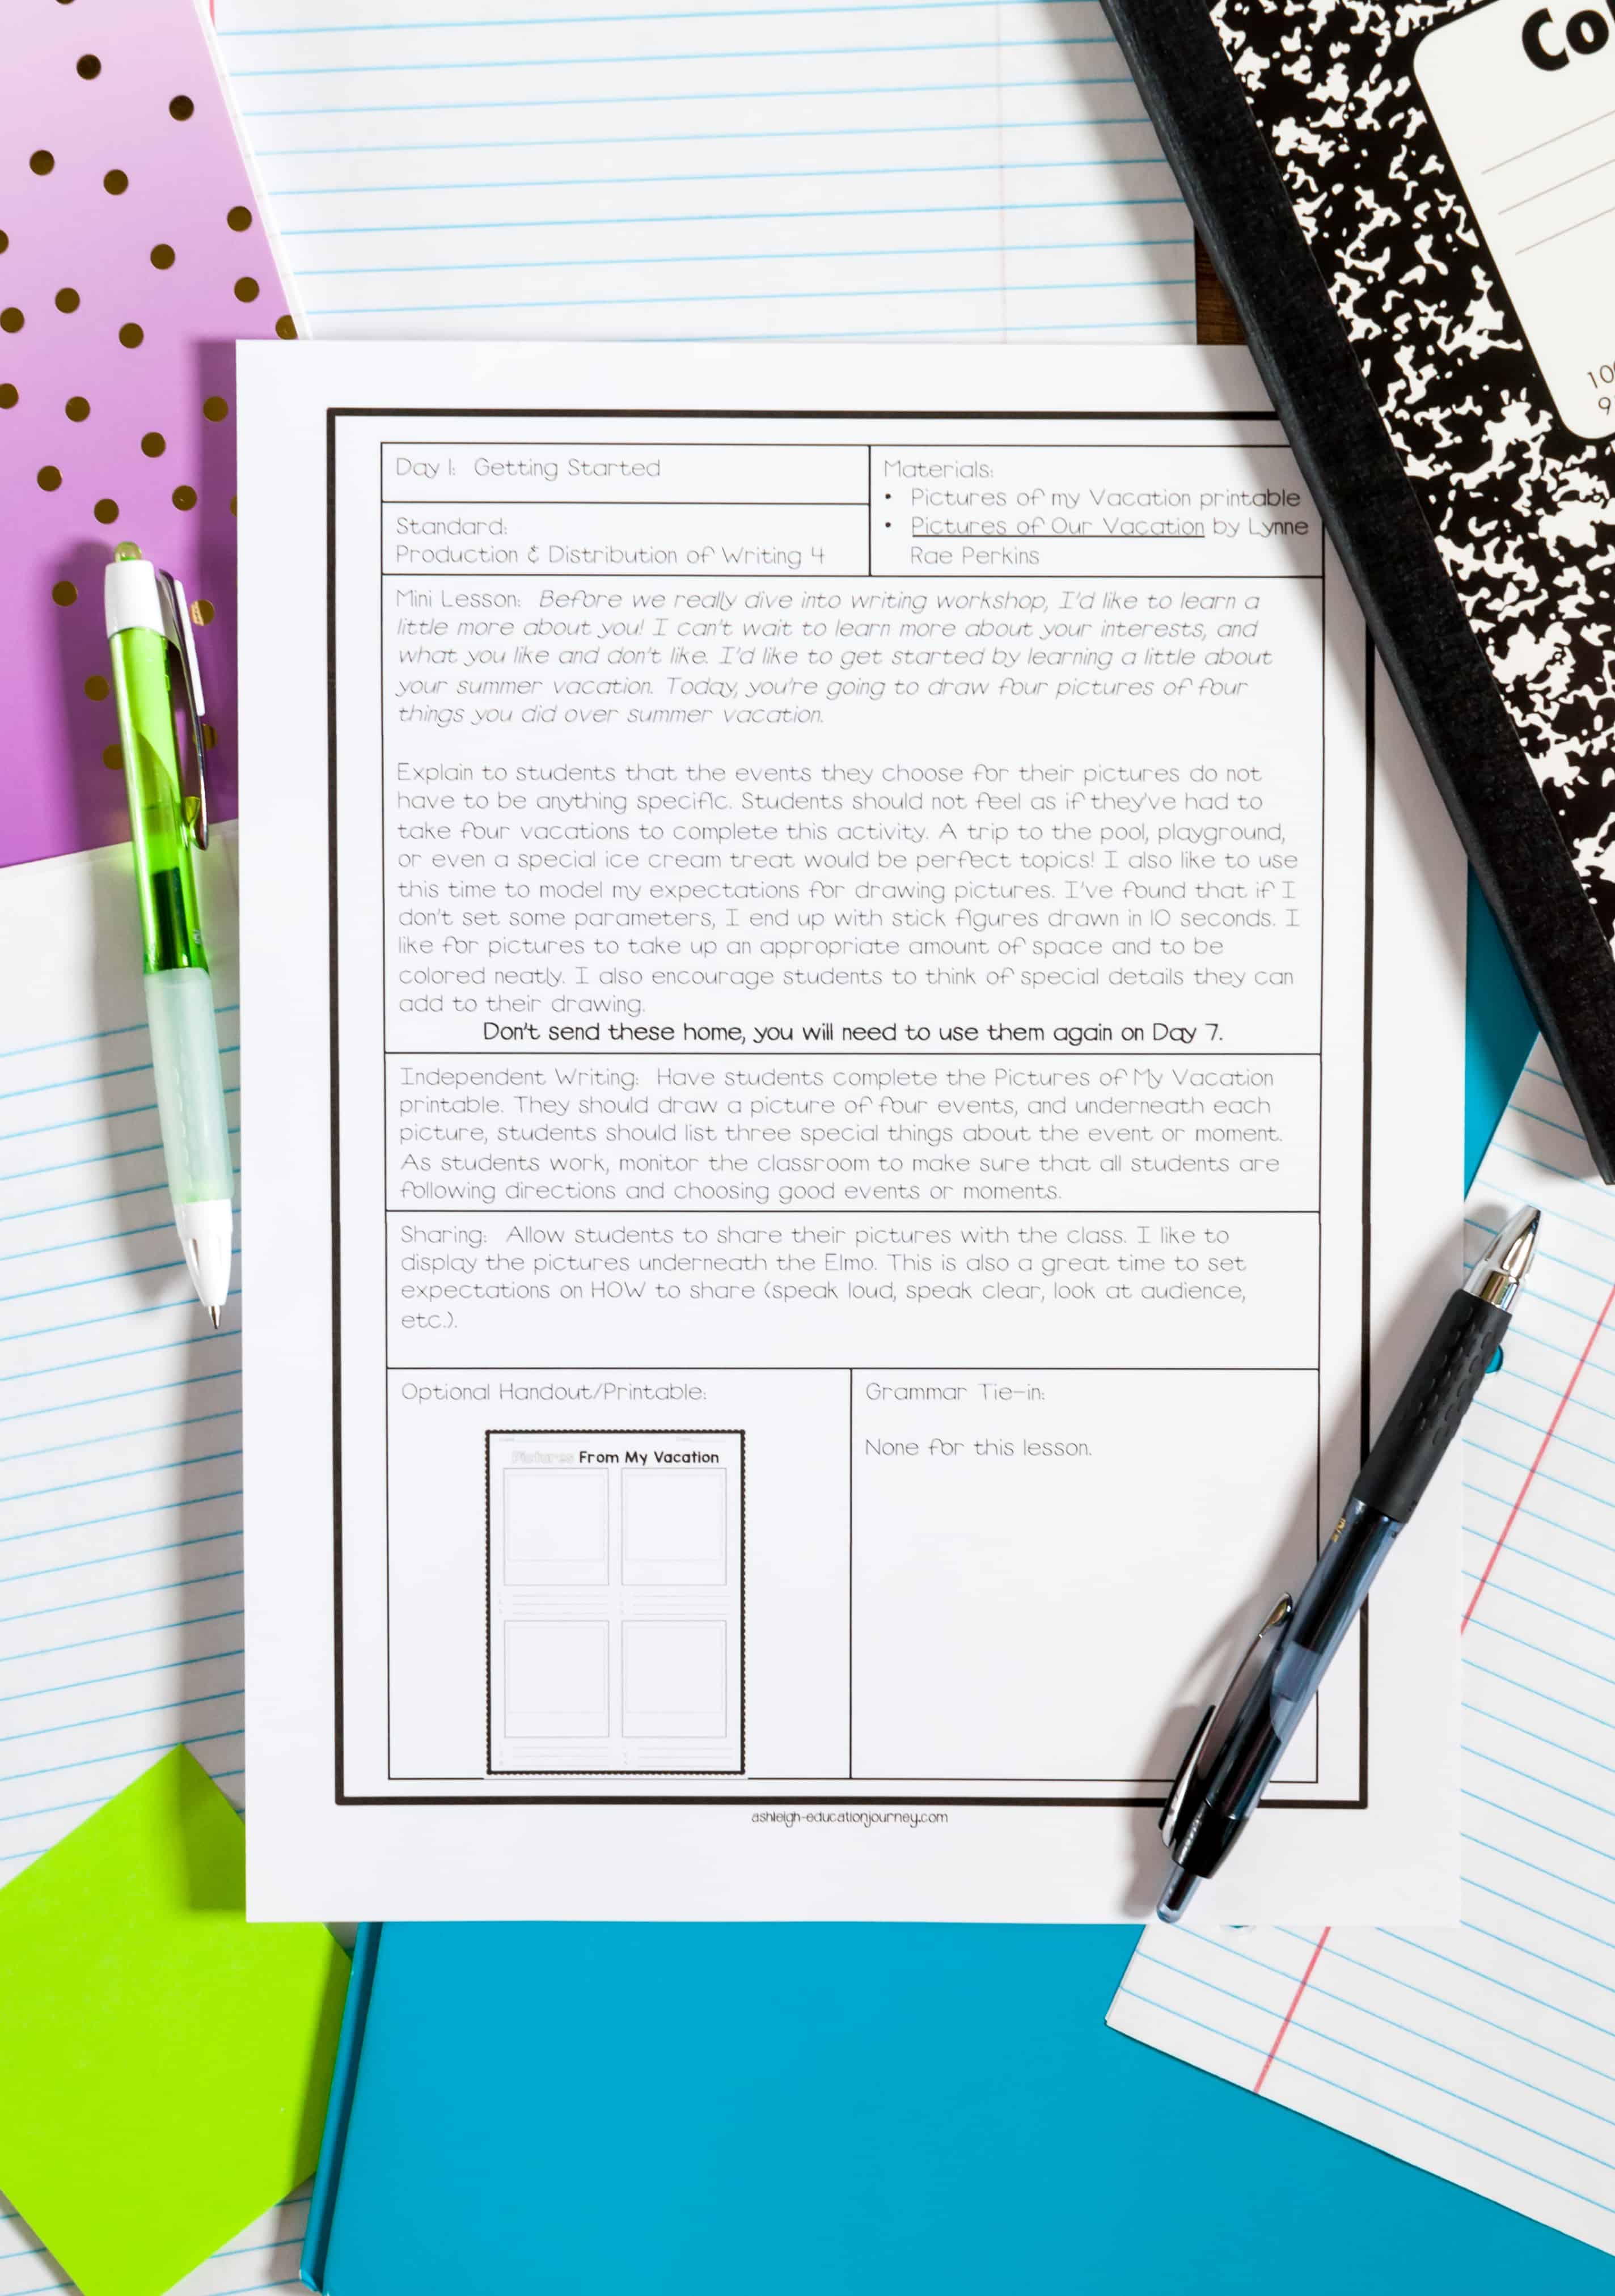 Co
10
9
Day 1: Getting Started
Standard:
Production & Distribution of Writing 4
Materials:
• Pictures of my Vacation printable
• Pictures of Our Vacation by Lynne
Rae Perkins
Mini Lesson: Before we really dive into writing workshop, I'd like to learn a
little more about you! I can't wait to learn more about your interests, and
what you like and don't like. I'd like to get started by learning a little about
your summer vacation. Today, you're going to draw four pictures of four
things you did over summer vacation.
Explain to students that the events they choose for their pictures do not
have to be anything specific. Students should not feel as if they've had to
take four vacations to complete this activity. A trip to the pool, playground,
or even a special ice cream treat would be perfect topics! I also like to use
this time to model my expectations for drawing pictures. I've found that if I
don't set some parameters, I end up with stick figures drawn in 10 seconds. I
like for pictures to take up an appropriate amount of space and to be
colored neatly. I also encourage students to think of special details they can
add to their drawing.
Don't send these home, you will need to use them again on Day 7.
Independent Writing: Have students complete the Pictures of My Vacation
printable. They should draw a picture of four events, and underneath each
picture, students should list three special things about the event or moment.
As students work, monitor the classroom to make sure that all students are
following directions and choosing good events or moments.
Sharing: Allow students to share their pictures with the class. I like to
display the pictures underneath the Elmo. This is also a great time to set
expectations on HOW to share (speak loud, speak clear, look at audience,
etc.).
Optional Handout/Printable:
Pictures From My Vacation
Grammar Tie-in:
None for this lesson.
ashleigh-educationjourney.com